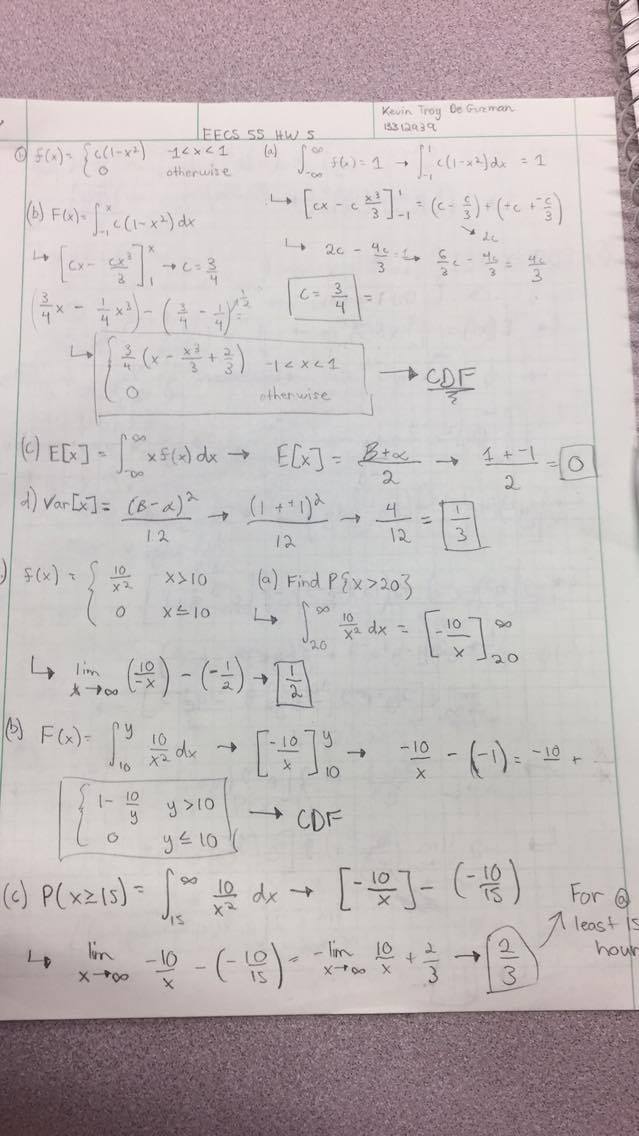 Kevin Troy De Guzman
EECS 55 HW 5
① f(x) = { c(1-x²) -1<x<1
0 otherwise
(a) ∫_{-∞}^{∞} f(x) = 1 → ∫_{-1}^{1} c(1-x²)dx = 1
↳ [cx - c x³/3]_{-1}^{1} = (c - c/3) + (+c + -c/3)
↳ 2c
c = 3/4 =
(b) F(x) = ∫_{-1}^{x} c(1-x²)dx
↳ [cx - cx³/3]_{1}^{x} → c = 3/4
(3/4 x - 1/4 x³) - (3/4 - 1/4)
↳ { 3/4 (x - x³/3 + 2/3) -1<x<1
0 otherwise
→ CDF
(c) E[x] = ∫_{-∞}^{∞} x f(x) dx → E[x] = (B+α)/2 → (1 + -1)/2 = 0
d) Var[x] = (B-α)²/12 → (1 + +1)²/12 → 4/12 = 1/3
f(x) = { 10/x² x>10
0 x≤10
(a) Find P{x>20}
↳ ∫_{20}^{∞} 10/x² dx = [-10/x]_{20}^{∞}
↳ lim x→∞ (10/-x) - (-1/2) → 1/2
(b) F(x) = ∫_{10}^{y} 10/x² dx → [-10/x]_{10}^{y} → -10/x - (-1) = -10 +
{ 1 - 10/y y>10
0 y≤10
→ CDF
(c) P(x≥15) = ∫_{15}^{∞} 10/x² dx → [-10/x] - (-10/15)
↳ lim x→∞ -10/x - (-10/15) = -lim x→∞ 10/x + 2/3 → 2/3
For @
least 15
hour